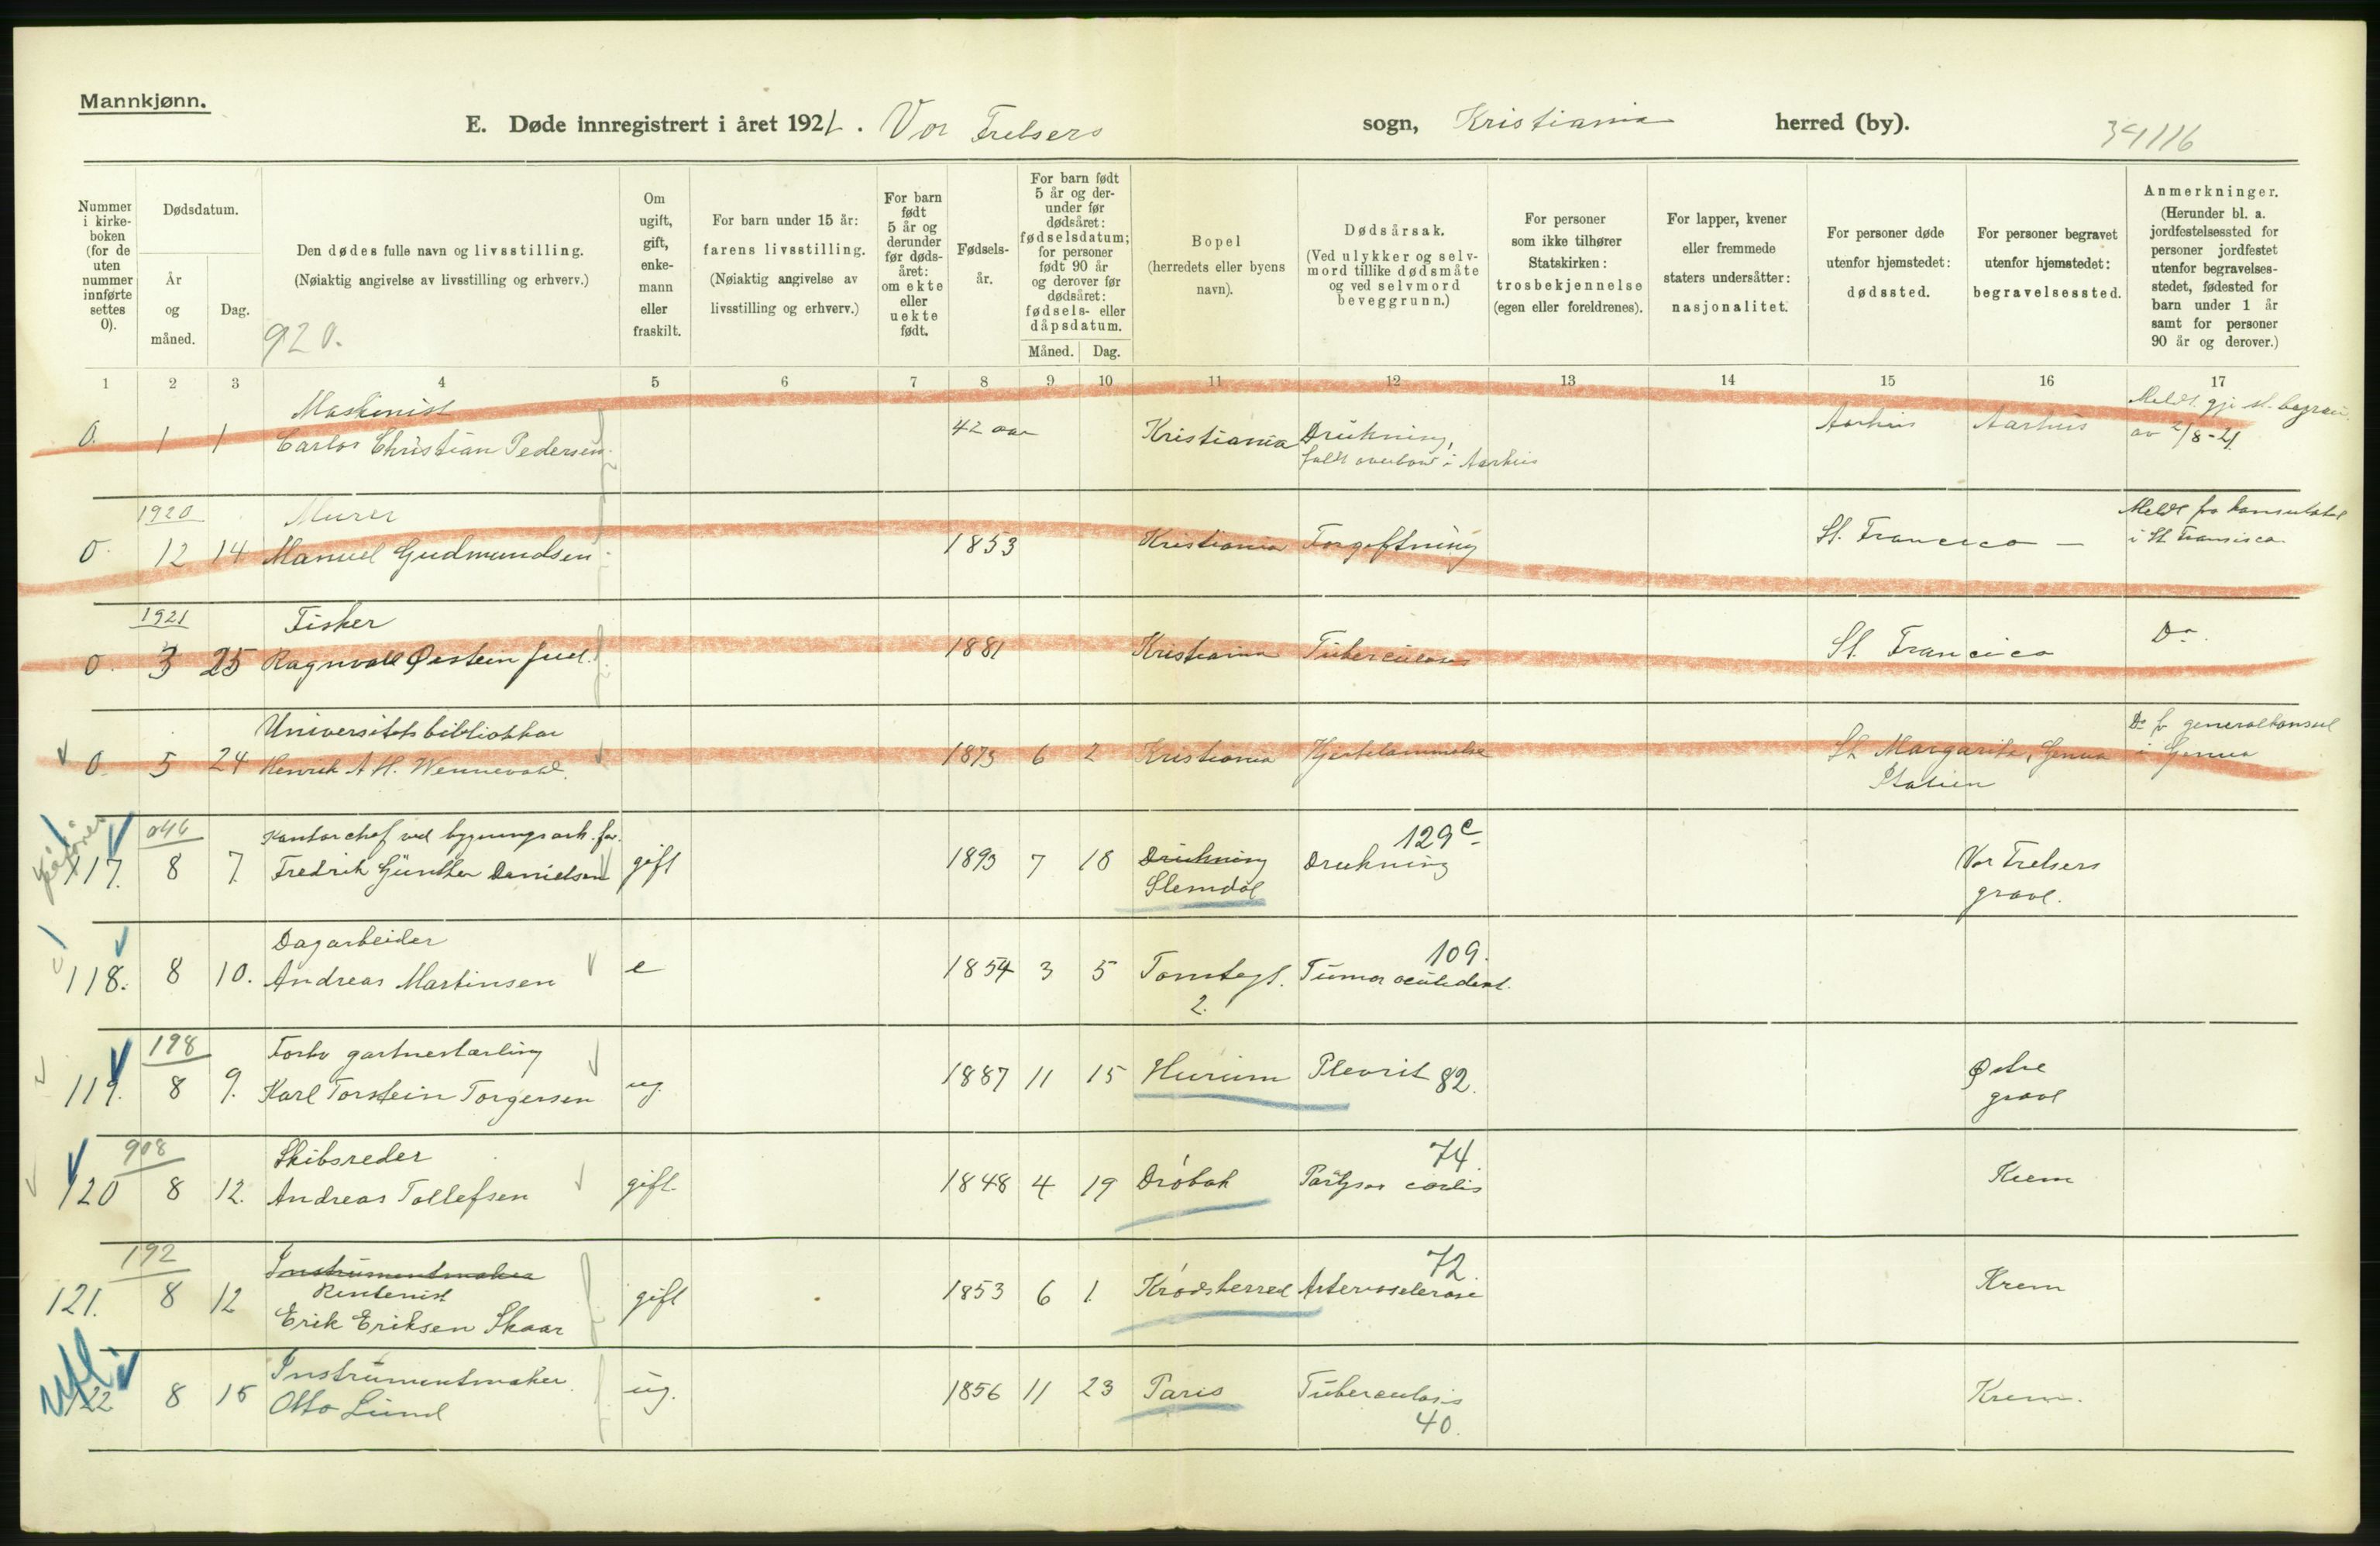 Mannkjønn.
E. Døde innregistrert i året 1921. Vor Frelsers sogn, Kristiania herred (by). 34116
Nummer i kirke-boken (for de uten nummer innførte settes 0).
Dødsdatum.
År og måned.
Dag.
Den dødes fulle navn og livsstilling.
(Nøiaktig angivelse av livsstilling og erhverv.)
920.
Om ugift, gift, enke-mann eller fraskilt.
For barn under 15 år:
farens livsstilling.
(Nøiaktig angivelse av livsstilling og erhverv.)
For barn født 5 år og derunder før døds-året: om ekte eller uekte født.
Fødsels-år.
For barn født 5 år og der-under før dødsåret: fødselsdatum; for personer født 90 år og derover før dødsåret: fødsels- eller dåpsdatum.
Måned. Dag.
Bopel
(herredets eller byens navn).
Dødsårsak.
(Ved ulykker og selv-mord tillike dødsmåte og ved selvmord beveggrunn.)
For personer som ikke tilhører Statskirken:
trosbekjennelse
(egen eller foreldrenes).
For lapper, kvener eller fremmede staters undersåtter:
nasjonalitet.
For personer døde utenfor hjemstedet:
dødssted.
For personer begravet utenfor hjemstedet:
begravelsessted.
Anmerkninger.
(Herunder bl. a. jordfestelsessted for personer jordfestet utenfor begravelses-stedet, fødested for barn under 1 år samt for personer 90 år og derover.)
1 2 3 4 5 6 7 8 9 10 11 12 13 14 15 16 17
Maskinist
0. 1 1 Carlos Christian Pedersen 42 aar Kristiania Drukning, Aarhus Aarhus
faldt overbord i Aarhus
av 2/8-21
1920 Murer
0. 12 14 Manuel Gudmundsen 1853 Kristiania Forgiftning St. Francisco — Meldt fra konsulatet
1921 Fisker
0. 3 25 Ragnvald Østein Juel 1881 Kristiania Tuberculose St. Francisco Do.
Universitetsbibliothkar
0. 5 24 Henrik A H. Wennevold 1873 6 2 Kristiania Hjertelammelse St. Margarita, Genua
Italien
Do fr generalkonsul
i Genua
046 Kontorchef ved bygningsark. for.
117. 8 7. Fredrik Günther Danielsen gift 1893 7 18 Drukning Drukning 129c Vor Frelsers
Slemdal gravl.
Dagarbeider
118. 8 10. Andreas Martinsen e 1854 3 5 Tomtegt. 109.
2.
198 Forhv gartnerlærling
119. 8 9. Karl Torstein Torgersen ug. 1887 11 15 Hurum Plevrit 82. Østre
gravl
908 Skibsreder
120 8 12. Andreas Tollefsen gift. 1848 4 19 Drøbak 74. Krem
192 Instrumentmaker
Rentenist
121. 8 12 Erik Eriksen Skaar gift 1853 6 1. Krødsherred Arteriosclerose 72. Krem
Instrumentmaker
122 8 15 Otto Lund ug. 1856 11 23 Paris Tuberculosis Krem.
40.